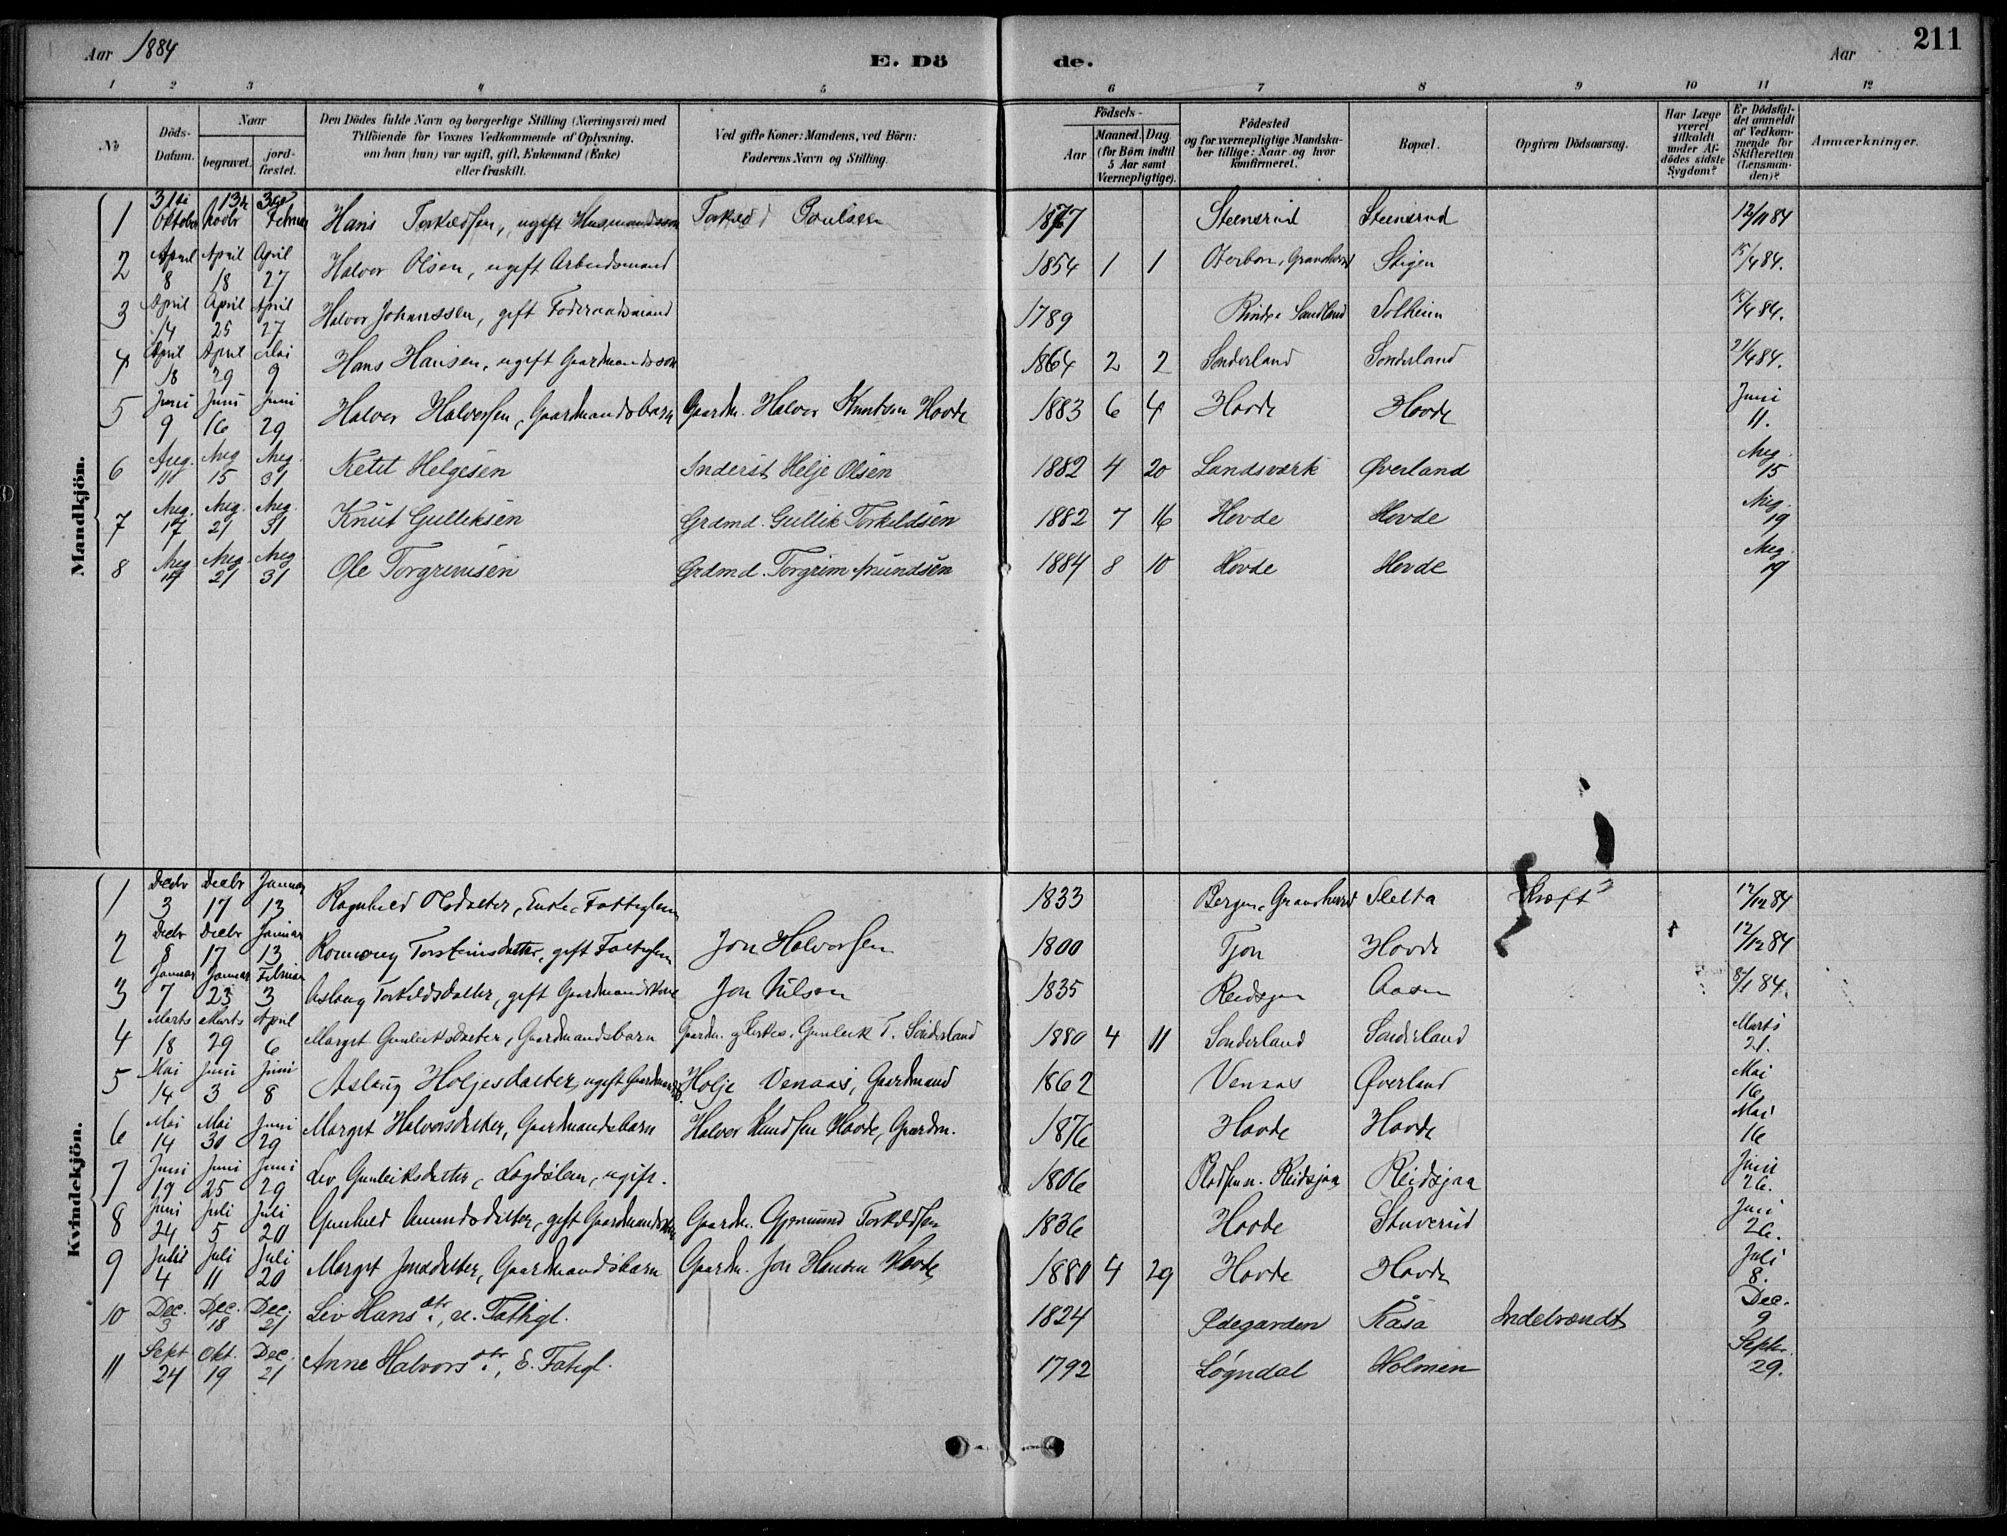 Aar 1884 E. Dö de. Aar 211
1 2 3 4 5 6 7 8 9 10 11 12
No
Döds-Datum.
Naar
begravet.
jordfæstet.
Den Dödes fulde Navn og borgerlige Stilling (Næringsvei) med
Tilföiende for Voxnes Vedkommende af Oplysning,
om han (hun) var ugift, gift, Enkemand (Enke)
eller fraskilt.
Ved gifte Koner: Mandens, ved Börn:
Faderens Navn og Stilling.
Födsels-
Aar
Maaned. Dag.
(for Börn indtil
5 Aar samt
Værnepligtige).
Födested
og for værnepligtige Mandska-
ber tillige: Naar og hvor
konfirmeret.
Bopæl.
Opgiven Dödsaarsag.
Har Læge
været
tilkaldt
under Af-
dödes sidste
Sygdom?
Er Dödsfal-
det anmeldt
af Vedkom-
mende for
Skifteretten
(Lensman-
den)?
Anmærkninger.
Mandkjön.
1 31 Oktober 13 Novbr Februar Hans Torkildsen, ugift Torkild Paulsen 1877 Steensrud Steensrud 12/11 84
2 April 8 April 18 April 27 Halvor Olsen, ugift Arbeidsmand 1854 1 1 Oterbøn, Gransherred Stigen 15/4 84.
3 April 14 April 25 April 27 Halvor Johanssen, gift Føderaadsmand 1789 Sandland Solheim 15/4 84.
4 April 18 April 29 Mai 9 Hans Hansen, ugift Gaardmandssøn 1864 2 2 Sønderland Sønderland 21/4 84.
5 Juni 9 Juni 16 Juni 29 Halvor Halvorsen, Gaardmandsbarn Gaardm. Halvor Knutsen Hovde 1883 6 4 Hovde Hovde Juni 11.
6 Aug. 11 Aug 15 Aug. 31 Ketil Helgesen Inderst Helje Olsen 1882 4 20 Landsværk Øverland Aug. 15
7 Aug. 17 Aug. 21 Aug. 31 Knut Gulleksen Grdmd. Gullik Torkildsen 1882 7 16 Hovde Hovde Aug. 19
8 Aug 17 Aug. 21 Aug 31 Ole Torgrimsen Grdmd. Torgrim Amundsen 1884 8 10 Hovde Hovde Aug. 19
Kvindekjön.
1 Decbr 3 Decbr 17 Januar 13 Ragnhild Olsdatter, Enke, Fattiglem 1833 Bergen, Gransherred Sletta Kræft 12/12 84
2 Decbr 8 Decbr 17 Januar 13 Torsteinsdatter, gift Fattiglem Jon Halvorsen 1800 Tjøn Hovde 12/12 84
3 Januar 7 Januar 23 Februar 3 Aslaug Torkildsdatter, gift Gaardmandskone Jon Nilsen 1835 Reidsjøen Aasen 8/1 84.
4 Marts 18 Marts 29 April 6 Marget Gunleiksdatter, Gaardmandsbarn Gaardm. Gunleik T. Sønderland 1880 4 11 Sønderland Sønderland Marts 21.
5 Mai 14 Juni 3 Juni 8 Aslaug Holjesdatter, ugift Holje Venaas, Gaardmand 1862 Venaas Øverland Mai 16
6 Mai 14 Mai 30 Juni 29 Marget Halvorsdatter, Gaardmandsbarn Halvor Knudsen Hovde, Gaardm. 1876 Hovde Hovde Mai 16
7 Juni 19 Juni 25 Juni 29 Liv Gunleiksdatter, Lægdslem, ugift. 1806 Reidsjaa Reidsjaa Juni 26.
8 Juni 24 Juli 5 Juli 20 Gunhild Amundsdatter, gift Gaardmandskone Gaardm. Gjermund Torkildsen 1836 Hovde Stuverud Juni 26.
9 Juli 4 Juli 11 Juli 20 Marget Jonsdatter, Gaardmandsbarn Gaardm. Jon Hansen Hovde 1880 4 29 Hovde Hovde Juli 8.
10 Dec. 3 Dec. 18 Dec. 21 Liv Hansdtr., u. Fattigl. 1824 Ødegarden Råsa Indebrændt Dec. 9
11 Sept 24 Okt. 19 Dec. 21 Anne Halvorsdtr., E. Fatigl. 1792 Løgndal Holmen Sept. 29.